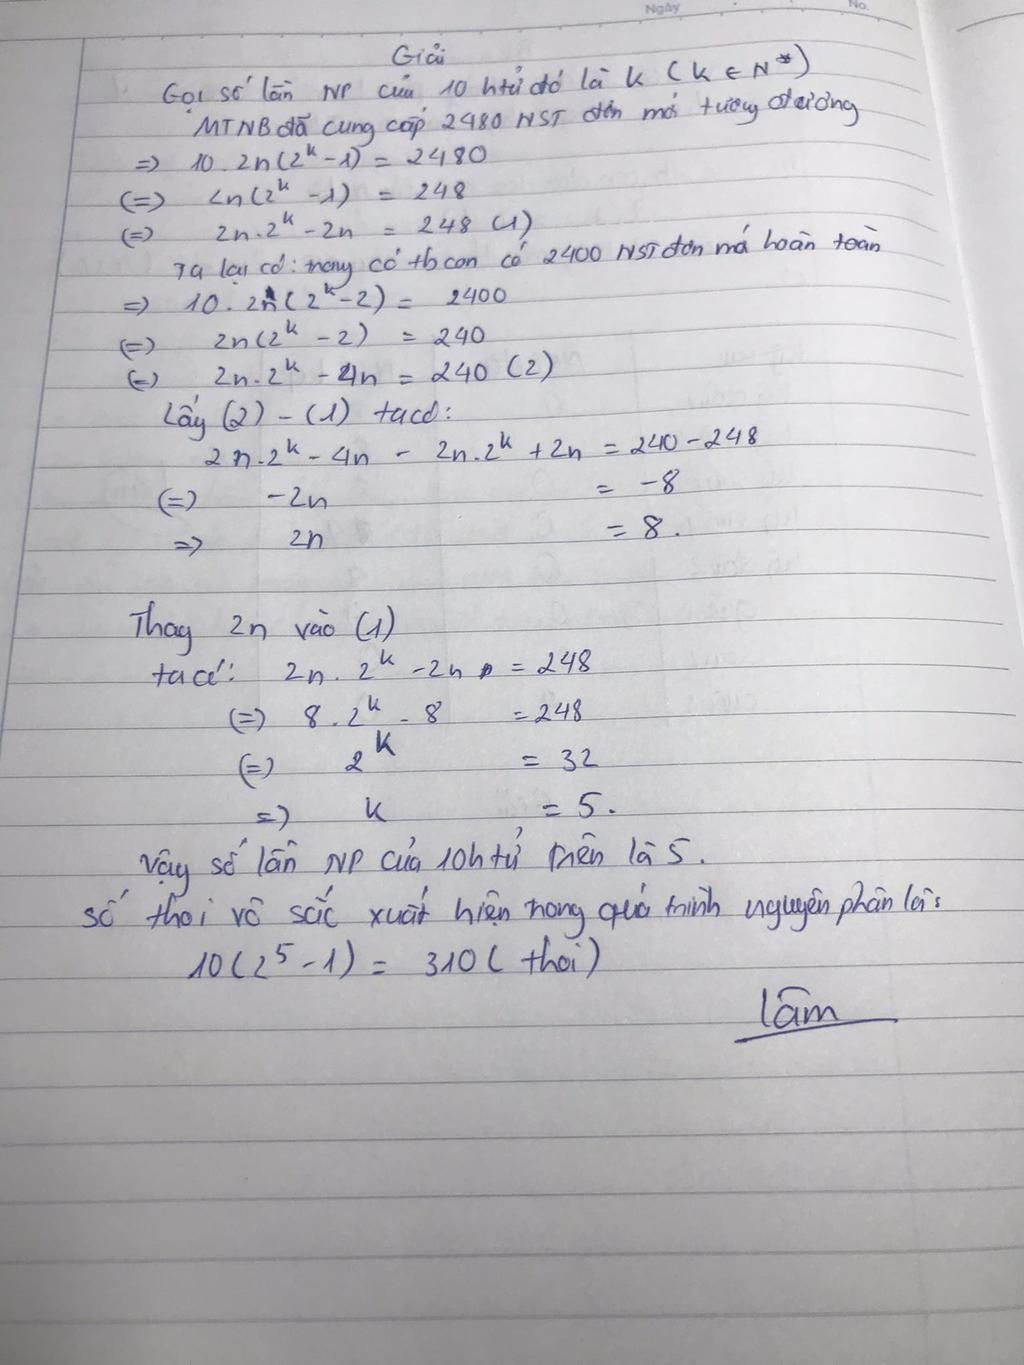 Ngày
No.
Giải
Gọi số lần NP của 10 htử đó là k (k ∈ N*)
MTNB đã cung cấp 2480 NST đơn mới tương đương
=) 10.2n(2^k - 1) = 2480
(=) 2n(2^k - 1) = 248
(=) 2n.2^k - 2n = 248 (1)
Ta lại có: trong có tb con có 2400 NST đơn mới hoàn toàn
=) 10.2n(2^k - 2) = 2400
(=) 2n(2^k - 2) = 240
(=) 2n.2^k - 4n = 240 (2)
Lấy (2) - (1) ta có:
2n.2^k - 4n - 2n.2^k + 2n = 240 - 248
(=) -2n = -8
=) 2n = 8.
Thay 2n vào (1)
ta có: 2n.2^k - 2n = 248
(=) 8.2^k - 8 = 248
(=) 2^k = 32
=) k = 5.
Vậy số lần NP của 10htử trên là 5.
số thoi vô sắc xuất hiện trong quá trình nguyên phân là:
10(2^5 - 1) = 310 (thoi)
lâm